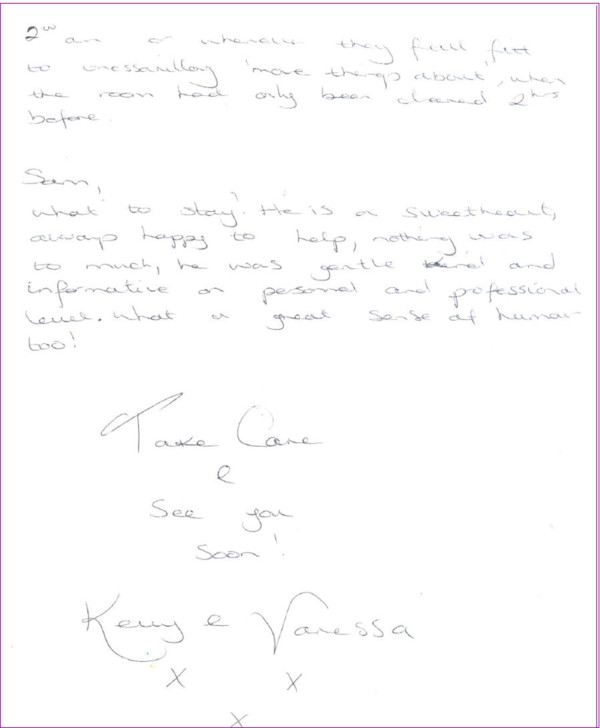 2⁰⁰ am or whenever they feel fitt
to unessarillay 'move things about', when
the room had only been cleaned 2hrs
before.
Sam,
what to stay! He is a sweetheart,
always happy to help, nothing was
to much, he was gentle kind and
informative on personel and professional
level. What a great sense of humar
too!
Take Care
&
See you
Soon!
Kerry & Vanessa
x x
x